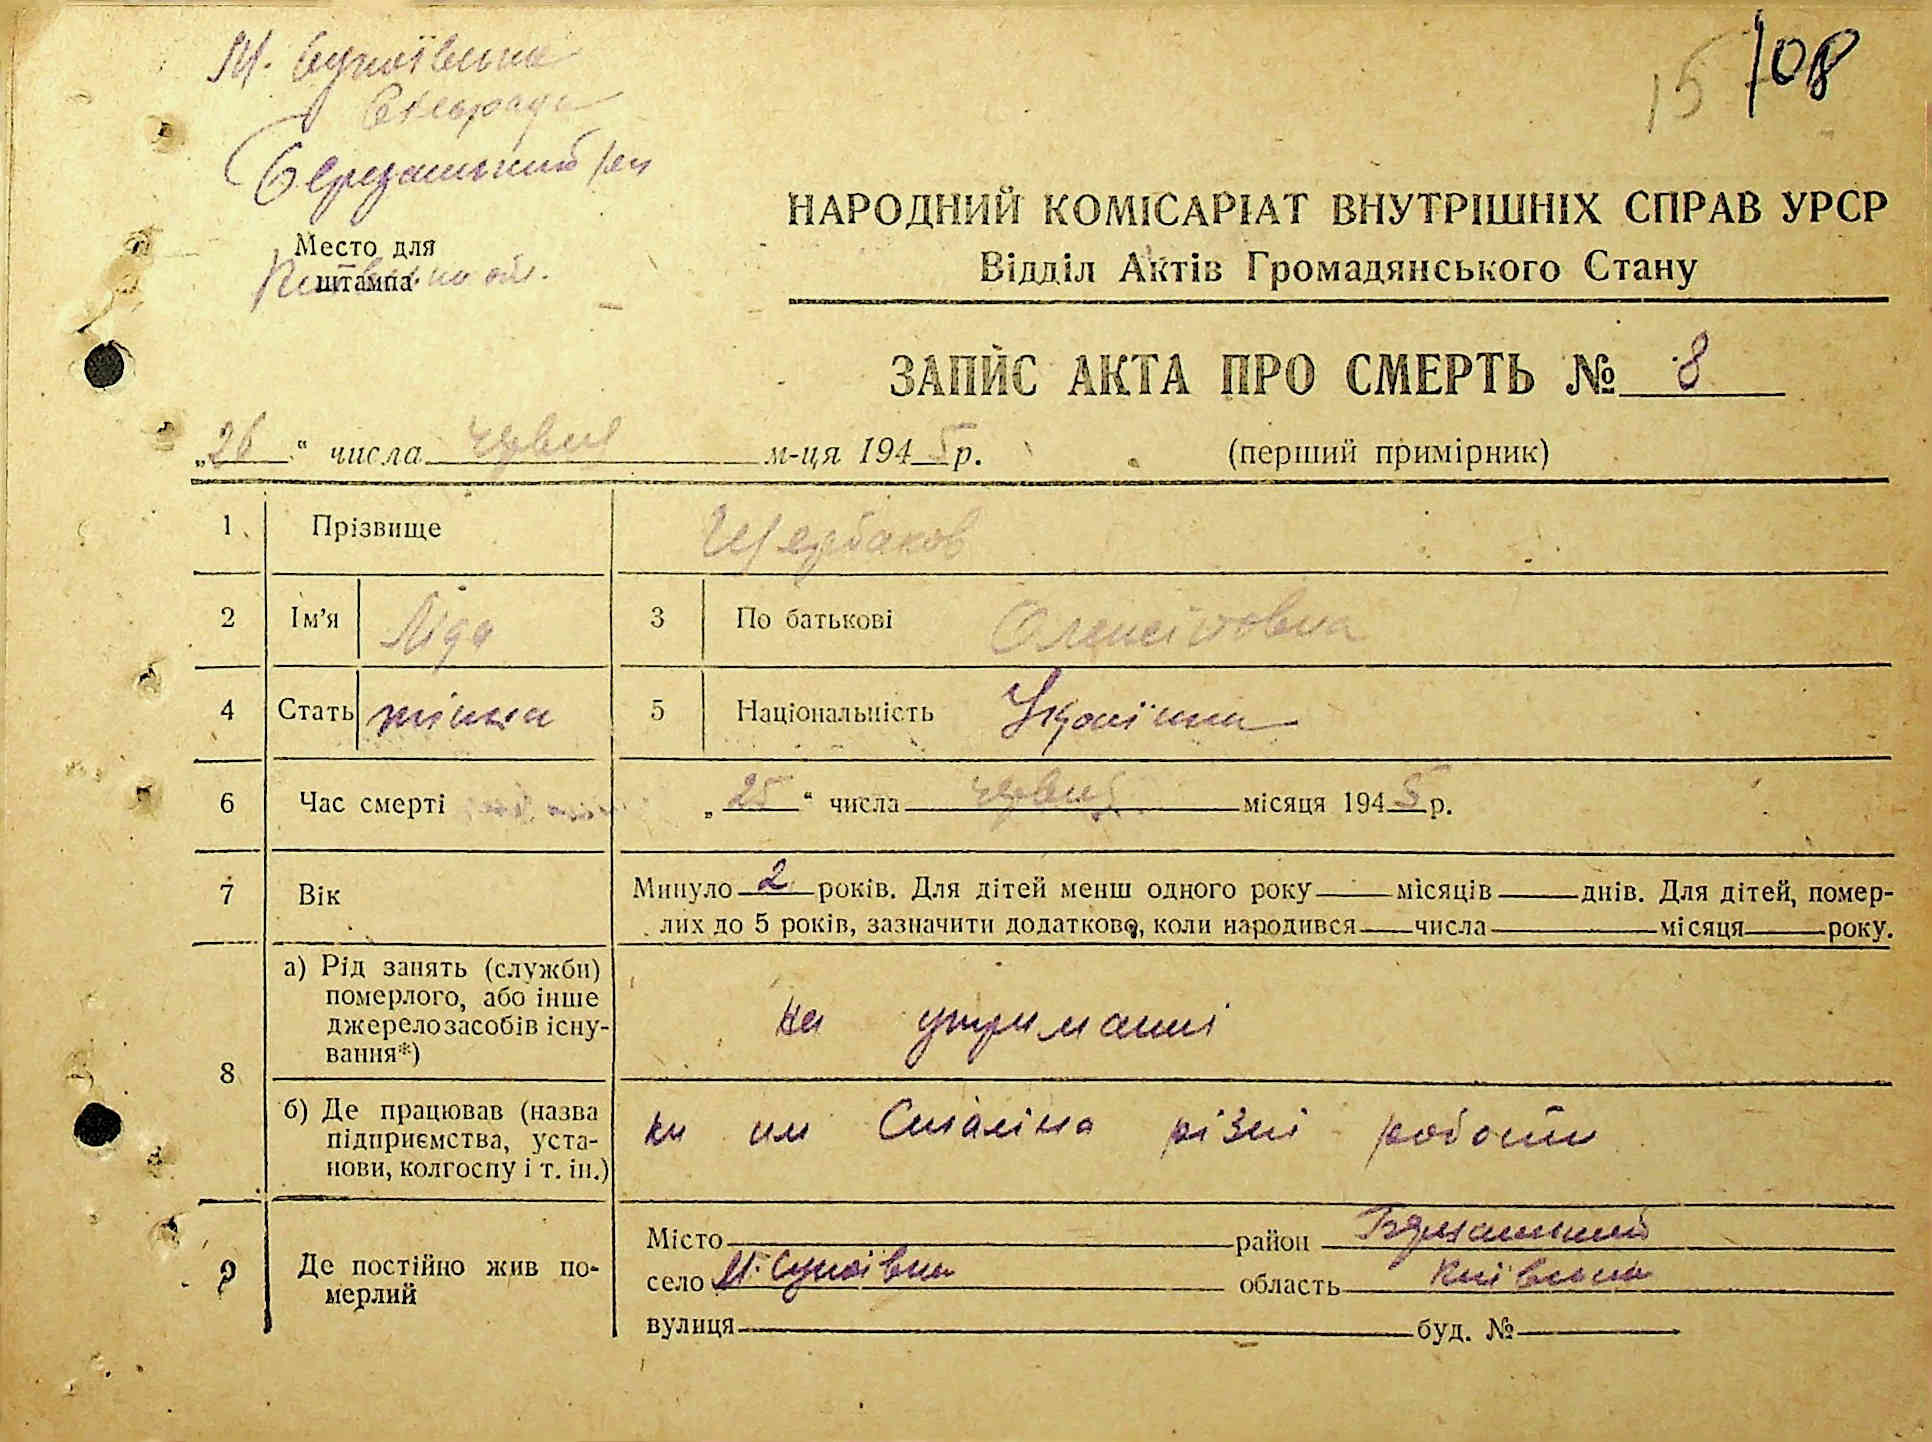 М. Супоївська
Сільрада
Березанський р-н
Место для
штампа
Київська обл.
15 108
НАРОДНИЙ КОМІСАРІАТ ВНУТРІШНІХ СПРАВ УРСР
Відділ Актів Громадянського Стану
ЗАПИС АКТА ПРО СМЕРТЬ № 8
„26“ числа червня м-ця 1945 р. (перший примірник)
1 Прізвище Щербаков
2 Ім’я Ліда 3 По батькові Олексіовна
4 Стать жінка 5 Національність Українка
6 Час смерті „25“ числа червня місяця 1945 р.
7 Вік Минуло 2 років. Для дітей менш одного року — місяців — днів. Для дітей, помер-
лих до 5 років, зазначити додатково, коли народився — числа — місяця — року.
8 а) Рід занять (служби)
померлого, або інше
джерело засобів існу-
вання*) на утриманні
б) Де працював (назва
підприємства, уста-
нови, колгоспу і т. ін.) им Сталіна різні роботи
9 Де постійно жив по-
мерлий
Місто — район Березанський
село М. Супоївка область Київська
вулиця — буд. № —